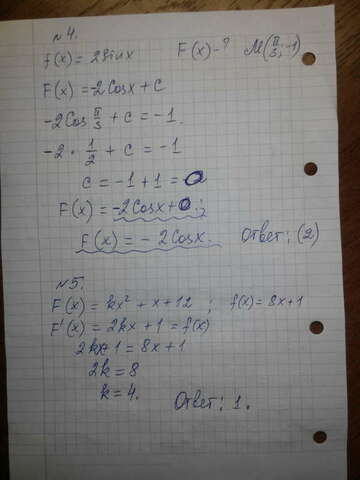 №4.
f(x) = 2sinx F(x) - ? M(π/3; -1)
F(x) = -2cosx + c
-2cos π/3 + c = -1.
-2 · 1/2 + c = -1
c = -1 + 1 = 0
F(x) = -2cosx + 0;
F(x) = -2cosx. Ответ: (2)
№5.
F(x) = kx² + x + 12 ; f(x) = 8x + 1
F'(x) = 2kx + 1 = f(x)
2kx + 1 = 8x + 1
2k = 8
k = 4.
Ответ: 1.